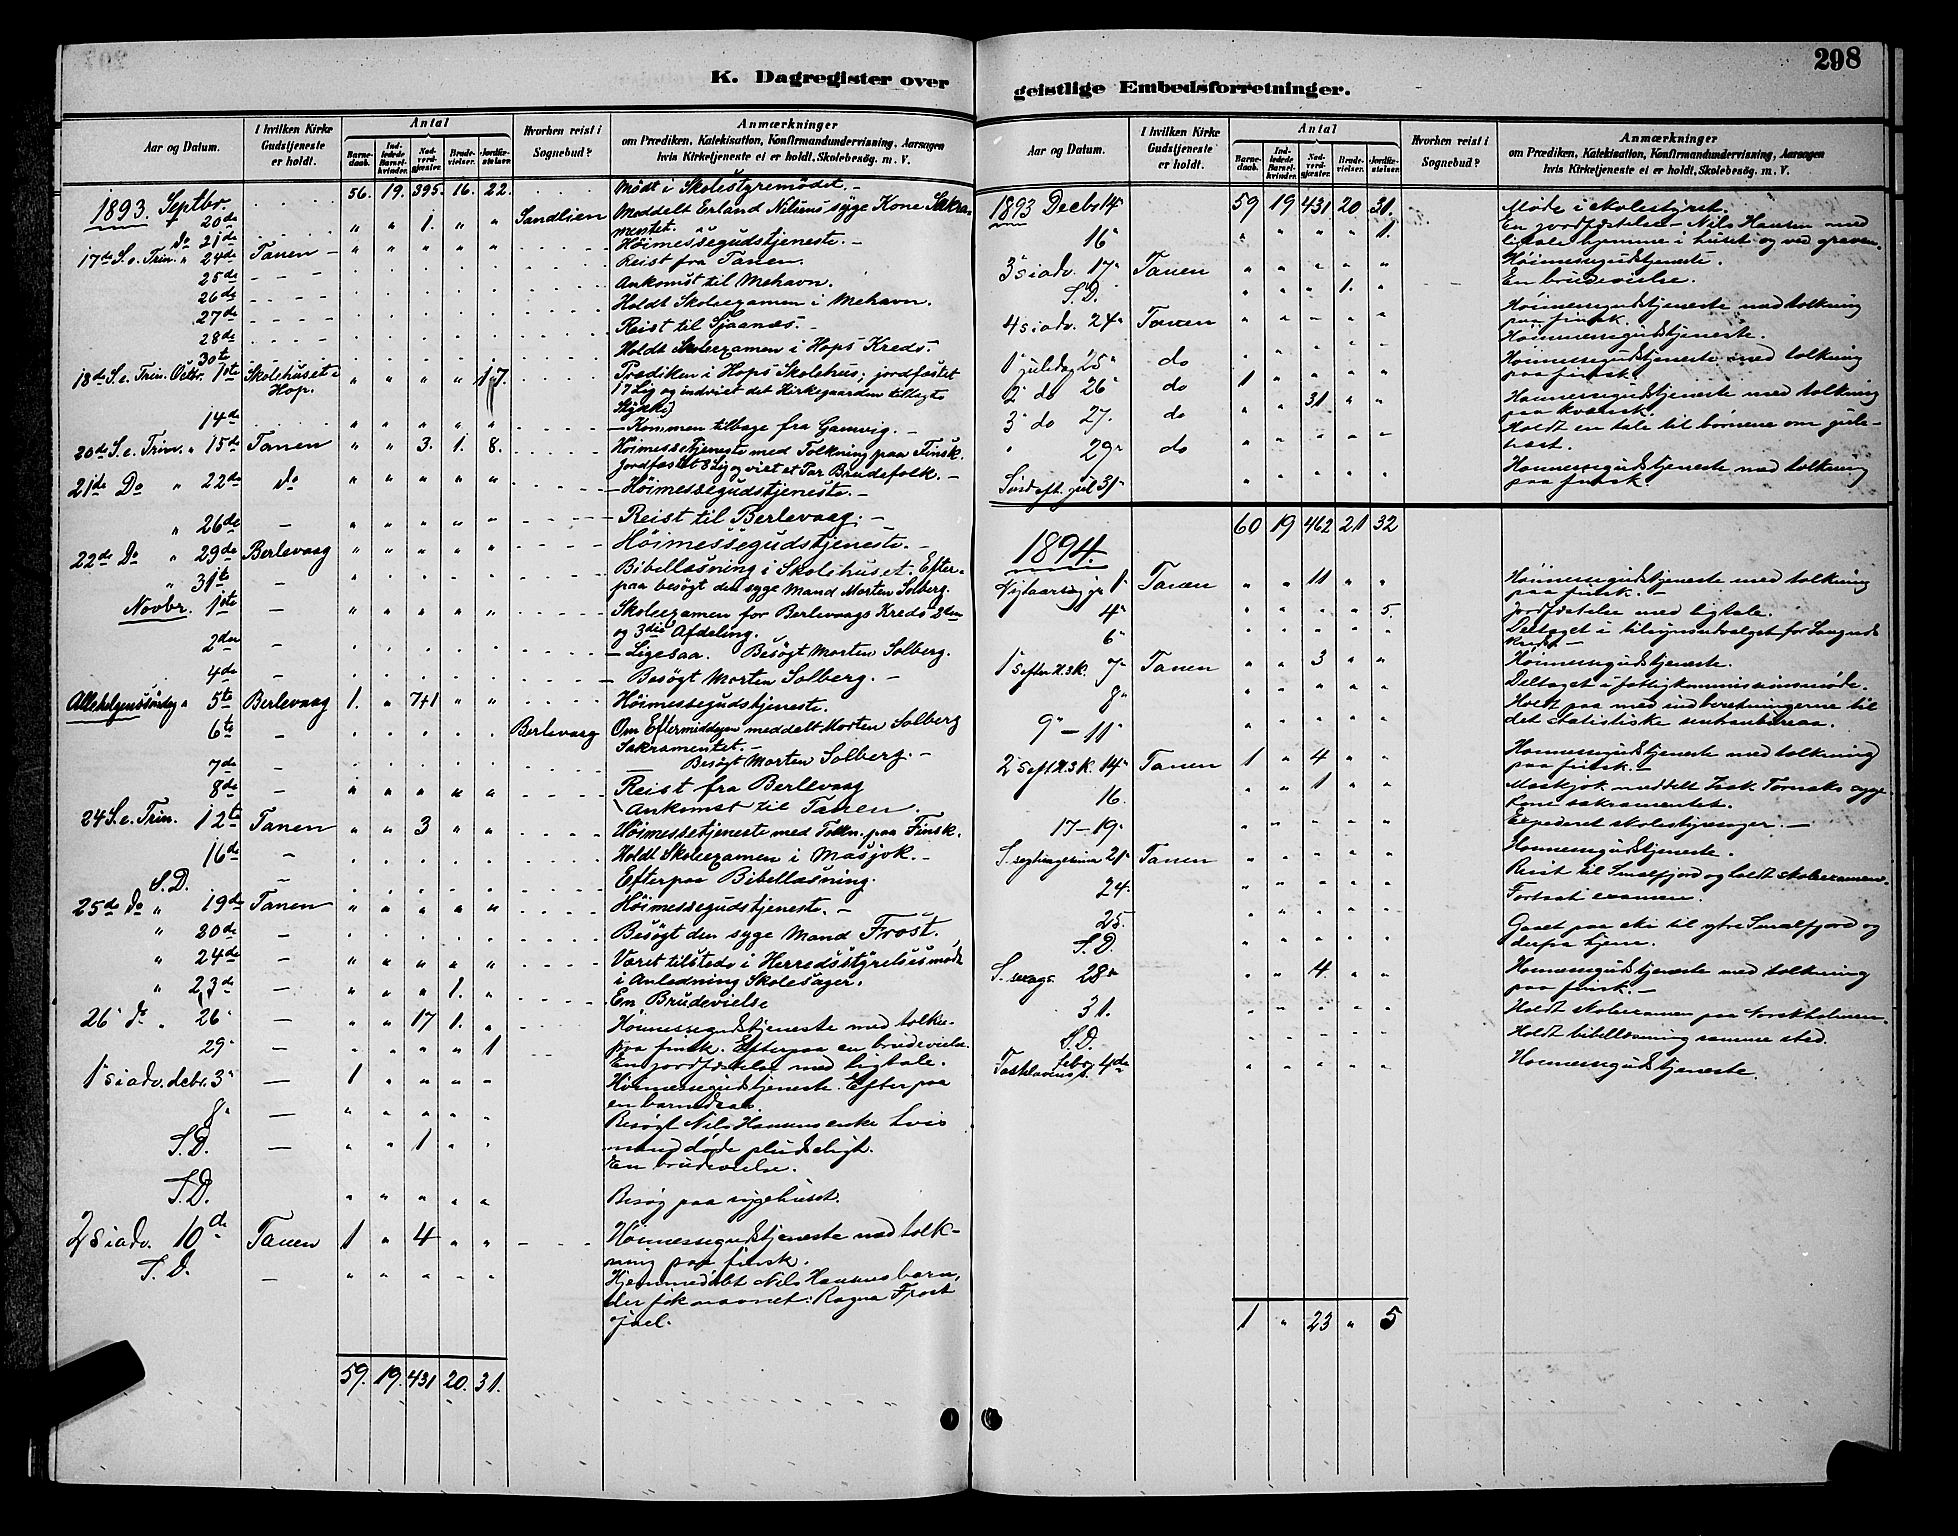 K. Dagregister over
Aar og Datum.
I hvilken Kirke Gudstjeneste er holdt.
Antal
Barnedaab. Indledede Barselkvinder. Nadverdgjester. Brudevielser. Jordfæstelser.
Hvorhen reist i Sognebud?
Anmærkninger
om Prædiken, Katekisation, Konfirmandundervisning, Aarsagen
hvis Kirketjeneste ei er holdt, Skolebesøg. m. V.
1893. Septbr. 56. 19. 395. 16. 22. Mødt i Skolestyremødet. -
20de " " 1. " " Sandlien Meddelt Erland Nilsens syge Kone Sakra-
mentet.
do 21de
17de S. e. Trin. " 24de Tanen - " " " " " Höimessegudstjeneste. -
25de Reist fra Tanen.
26de Ankomst til Mehavn.
27de Holdt Skoleexamen i Mehavn.
28de Reist til Sjaanæs. -
30te Holdt Skoleexamen i Hops Kreds.
18de S. e. Trin. Octbr. 1ste Skolehuset i Hop. " " " " 17. Prædiken i Hops Skolehus; jordfæstet
17 Lig og indviet det Kirkegaarden tillagte
Stykke)
14de " " " " " - Kommen tilbage fra Gamvig. -
20de S. e. Trin. " 15de Tanen " " 3. 1. 8. Höimessetjeneste med Tolkning paa Finsk.
Jordfæstet 8 Lig og viet et Par Brudefolk. -
21de Do " 22de do " " " " " - Höimessegudstjeneste. -
" 26de - " " " " " - Reist til Berlevaag. -
22de Do " 29de Berlevaag " " " " " - Höimessegudstjeneste. -
" 31te - Bibellæsning i Skolehuset. Efter-
paa besögt den syge Mand Morten Solberg.
Novbr. 1ste - " " " " " Skoleexamen for Berlevaags Kreds 2den
og 3die Afdeling.
2den - - Ligesaa. Besögt Morten Solberg.
4de - - Besögt Morten Solberg. -
Allehelgenssöndag " 5te Berlevaag 1. " 741 " " Höimessegudstjeneste.
6te - Berlevaag Om Eftermiddagen meddelt Morten Solberg
Sakramentet. -
7de - Besögt Morten Solberg. -
8de - " " " " " Reist fra Berlevaag
Ankomst til Tanen.
24 S. e. Trin. 12te Tanen " " 3 " " Höimessetjeneste med Tolkn. paa Finsk.
16de - Holdt Skoleexamen i Masjok. -
S.D. - Efterpaa Bibellæsning.
25de do " 19de Tanen " " " " " Höimessegudstjeneste. -
" 20de - Besögt den syge Mand Frost.
" 24de - " " " " " Været tilstede i Herredsstyrelsesmöde
i Anledning Skolesager.
" 23de - " " " 1. " En Brudevielse
26 do " 26 - " " 17 1. " Höimessegudstjeneste med tolkn.
paa finsk. Efterpaa en brudevielse.
29 - " " " " 1 En jordfæstelse med ligtale.
1 s i adv. debr. 3 - 1 " " " " Höimessegudstjeneste. Efterpaa
en barnedaab.
8 - " " " " " Besögt Nils Hansens enke hvis
mand döde pludseligt.
S.D. - " " 1 " " En brudevielse.
S.D. " " " " " Besög paa sygehuset.
2 s i adv. 10de Tanen 1 " 4 " " Höimessegudstjeneste med tolk-
ning paa finsk.
S.D. - " " " " " Hjemmedöbt Nils Hansens barn,
der fik navnet: Ragna Frost
Jael.
59. 19. 431 20. 31.
298
geistlige Embedsforretninger.
Aar og Datum.
I hvilken Kirke Gudstjeneste er holdt.
Antal
Barnedaab. Indledede Barselkvinder. Nadverdgjester. Brudevielser. Jordfæstelser.
Hvorhen reist i Sognebud?
Anmærkninger
om Prædiken, Katekisation, Konfirmandundervisning, Aarsagen
hvis Kirketjeneste ei er holdt, Skolebesøg. m. V.
1893 Decbr 14 59 19 431 20 31 Möde i skolestyret.
16 " " " " 1. En jordfæstelse - Nils Hansen med
ligtale hjemme i huset og ved graven.
3 s i adv. 17 Tanen " " " " " Höimessegudstjeneste.
S.D. " " " 1. " En brudevielse.
4 s i adv. 24 Tanen " " " " " Höimessegudstjeneste med tolkning
paa finsk.
1 juledag 25 do " " " " " Höimessegudstjeneste.
2 do 26 do 1 " " " " Höimessegudstjeneste med tolkning
paa finsk.
3 do 27. do " " 31 " " Höimessegudstjeneste med tolkning
paa kvænsk.
" 29 do " " " " " Holdt en tale til börnene om jule-
træet.
Sönd. eft. jul 31 " " " " " Höimessegudstjeneste med tolkning
paa finsk.
60 19 462 21 32
1894.
Nytaarsdag 1 Tanen " " 11 " " Höimessegudstjeneste med tolkning
paa finsk. -
4 " " " " 5. Jordfæstelse med ligtale.
6 " " " " " Deltaget i tilsynsudvalget for Langnes
kreds -
1 s eft. H.3.K. 7 Tanen " " 3 " " Höimessegudstjeneste.
8 " " " " " Deltaget i fattigkommissionsmöde.
9 - 11 " " " " " Holdt paa med indberetningerne til
det statistiske centralbureau.
2 s eft. H3K. 14 Tanen 1 " 4 " " Höimessegudstjeneste med tolkning
paa finsk. -
16. " " 1 " " Maskjok meddelt Isak Tornæks syge
kone sakramentet.
17 - 19 " " " " " Expederet skolestyresager. -
S. septuagesima 21 Tanen " " " " " Höimessegudstjeneste.
24. " " " " " Reist til Smalfjord og holdt skoleexamen.
25. Fortsat examen.
S.D. " " " " " Gaaet paa ski til ytre Smalfjord og
derfra hjem.
S. sexag. 28 " " 4. " " Höimessegudstjeneste med tolkning
paa finsk. -
31. " " " " " Holdt skoleexamen paa Norskholmen.
S.D. " " " " " Holdt bibellæsning samme sted.
Fastelavnss. Febr. 4de " " " " " Höimessegudstjeneste.
1 " 23 " 5